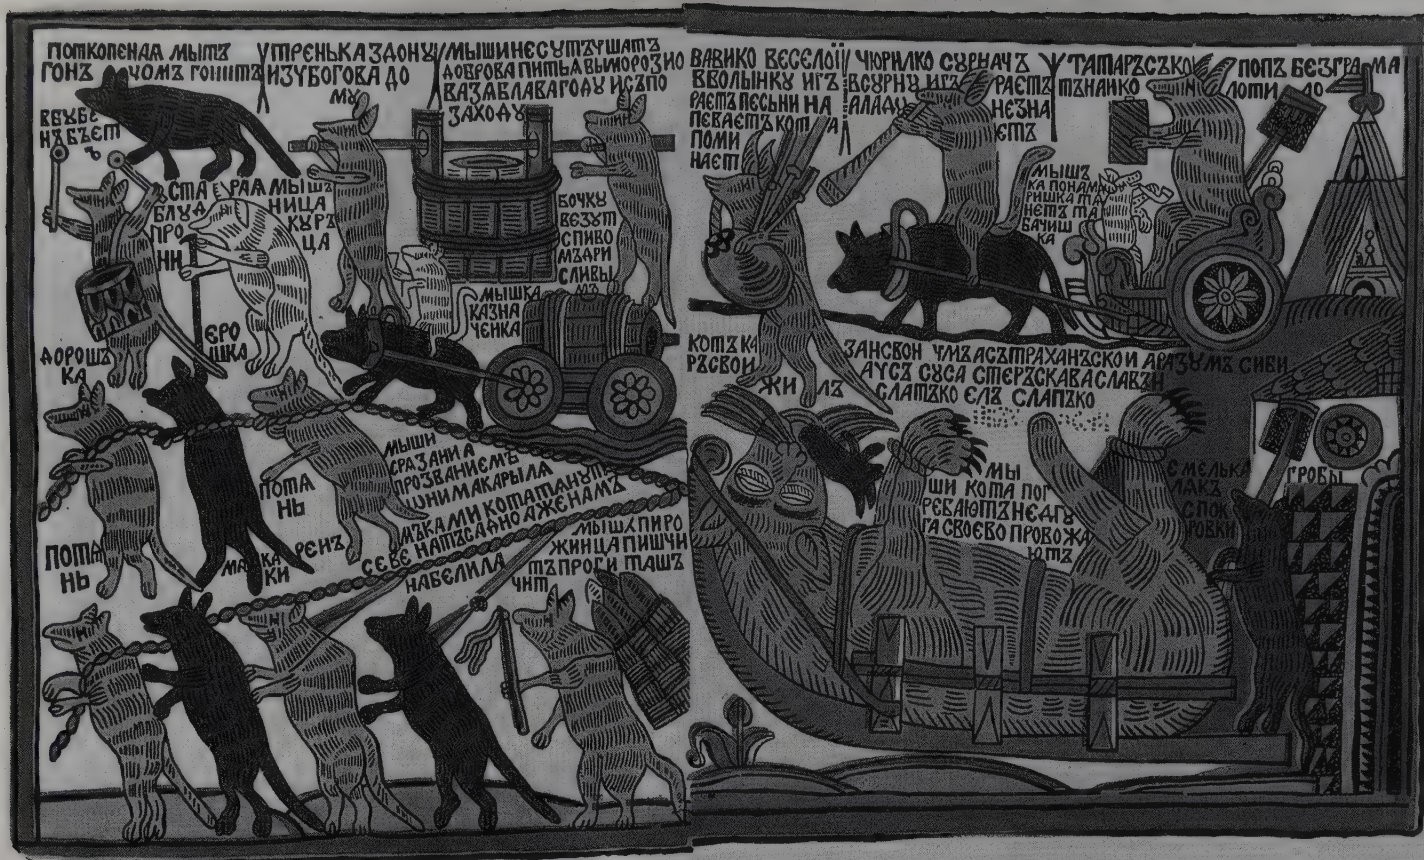 ПОТКОПЕНДА МЫТЪ
ГОНЪ ЧОМЪ ГОНІТЪ
УТРЕНЬКА ЗДОНУ
ИЗУБОГОВА ДО
МУ
МЫШИ НЕСУТЪ УШАТЪ
ДОБРОВА ПИТЬА ВЫМОРОЗИО
ВАЗАВЛАВАГОДУ ИСЪПО
ЗАХОДУ
ВАВИКО ВЕСЕЛОЇ
ВВОЛЫНКУ ИГЪ
РАЕТЪ ПЕСЬНИ НА
ПЕВАЕТЪ КОТ
ПОМИ
НАЕТ
ЧЮРИЛКО СУРНАЧЪ
ВСУРНУ ИГЪ РАЕТЪ
АЛАДУ НЕЗНА
ЕТЪ
ТАТАРЪСЪКОИ ПОПЪ БЕЗГРАМА
ВБУБЕ
НЪ БЪЕТ
Ъ
СТАРАА МЫШЪ
БЛУА НИЦА
ПРО КУРЪ
НИ ЦА
ЕРО
ШКА
ДОРОШЪ
КА
БОЧКУ
ВЕЗУТ
СПИВО
МЪАРИ
СЛИВЫ
МЪ
МЫШКА
КАЗНА
ЧЕНКА
МЫШЪ
КА ПОНАМА
РИШКА ТА
НЕТЪ ТА
БАЧИШ
КА
КОТЪ КА
ЗАНСКОИ УМЪ АСЪТРАХАНЪСКОИ АРАЗУМЪ СИБИ
РЪСКОИ АУСЪ СУСА СТЕРЪСКАВА СЛАВЪН
ЖИЛЪ СЛАТЪКО ЕЛЪ СЛАПЪКО
МЫШИ
СРАЗАНИ А
ПРОЗВАНИЕМЪ
СНИМАКАРЫЛА
МЪКАМИ КОТА ТАНУТЪ
СЕБЕ НАТЪСАДНО АЖЕНАМЪ
НАБЕЛИЛА
ПОТА
НЬ
ПОТА
НЬ
МАКАРЕНЪ
КИ
МЫША ПИРО
ЖНИЦА ПИШЧИ
ТЪ ПРОГИ ТАШЪ
ЧИТ
МЫ
ШИ КОТА ПОГ
РЕБАЮТЪ НЕДГУ
ГА СВОЕВО ПРОВОЖА
ЮТЪ
ЕМЕЛЬКА
ГРОБЫ